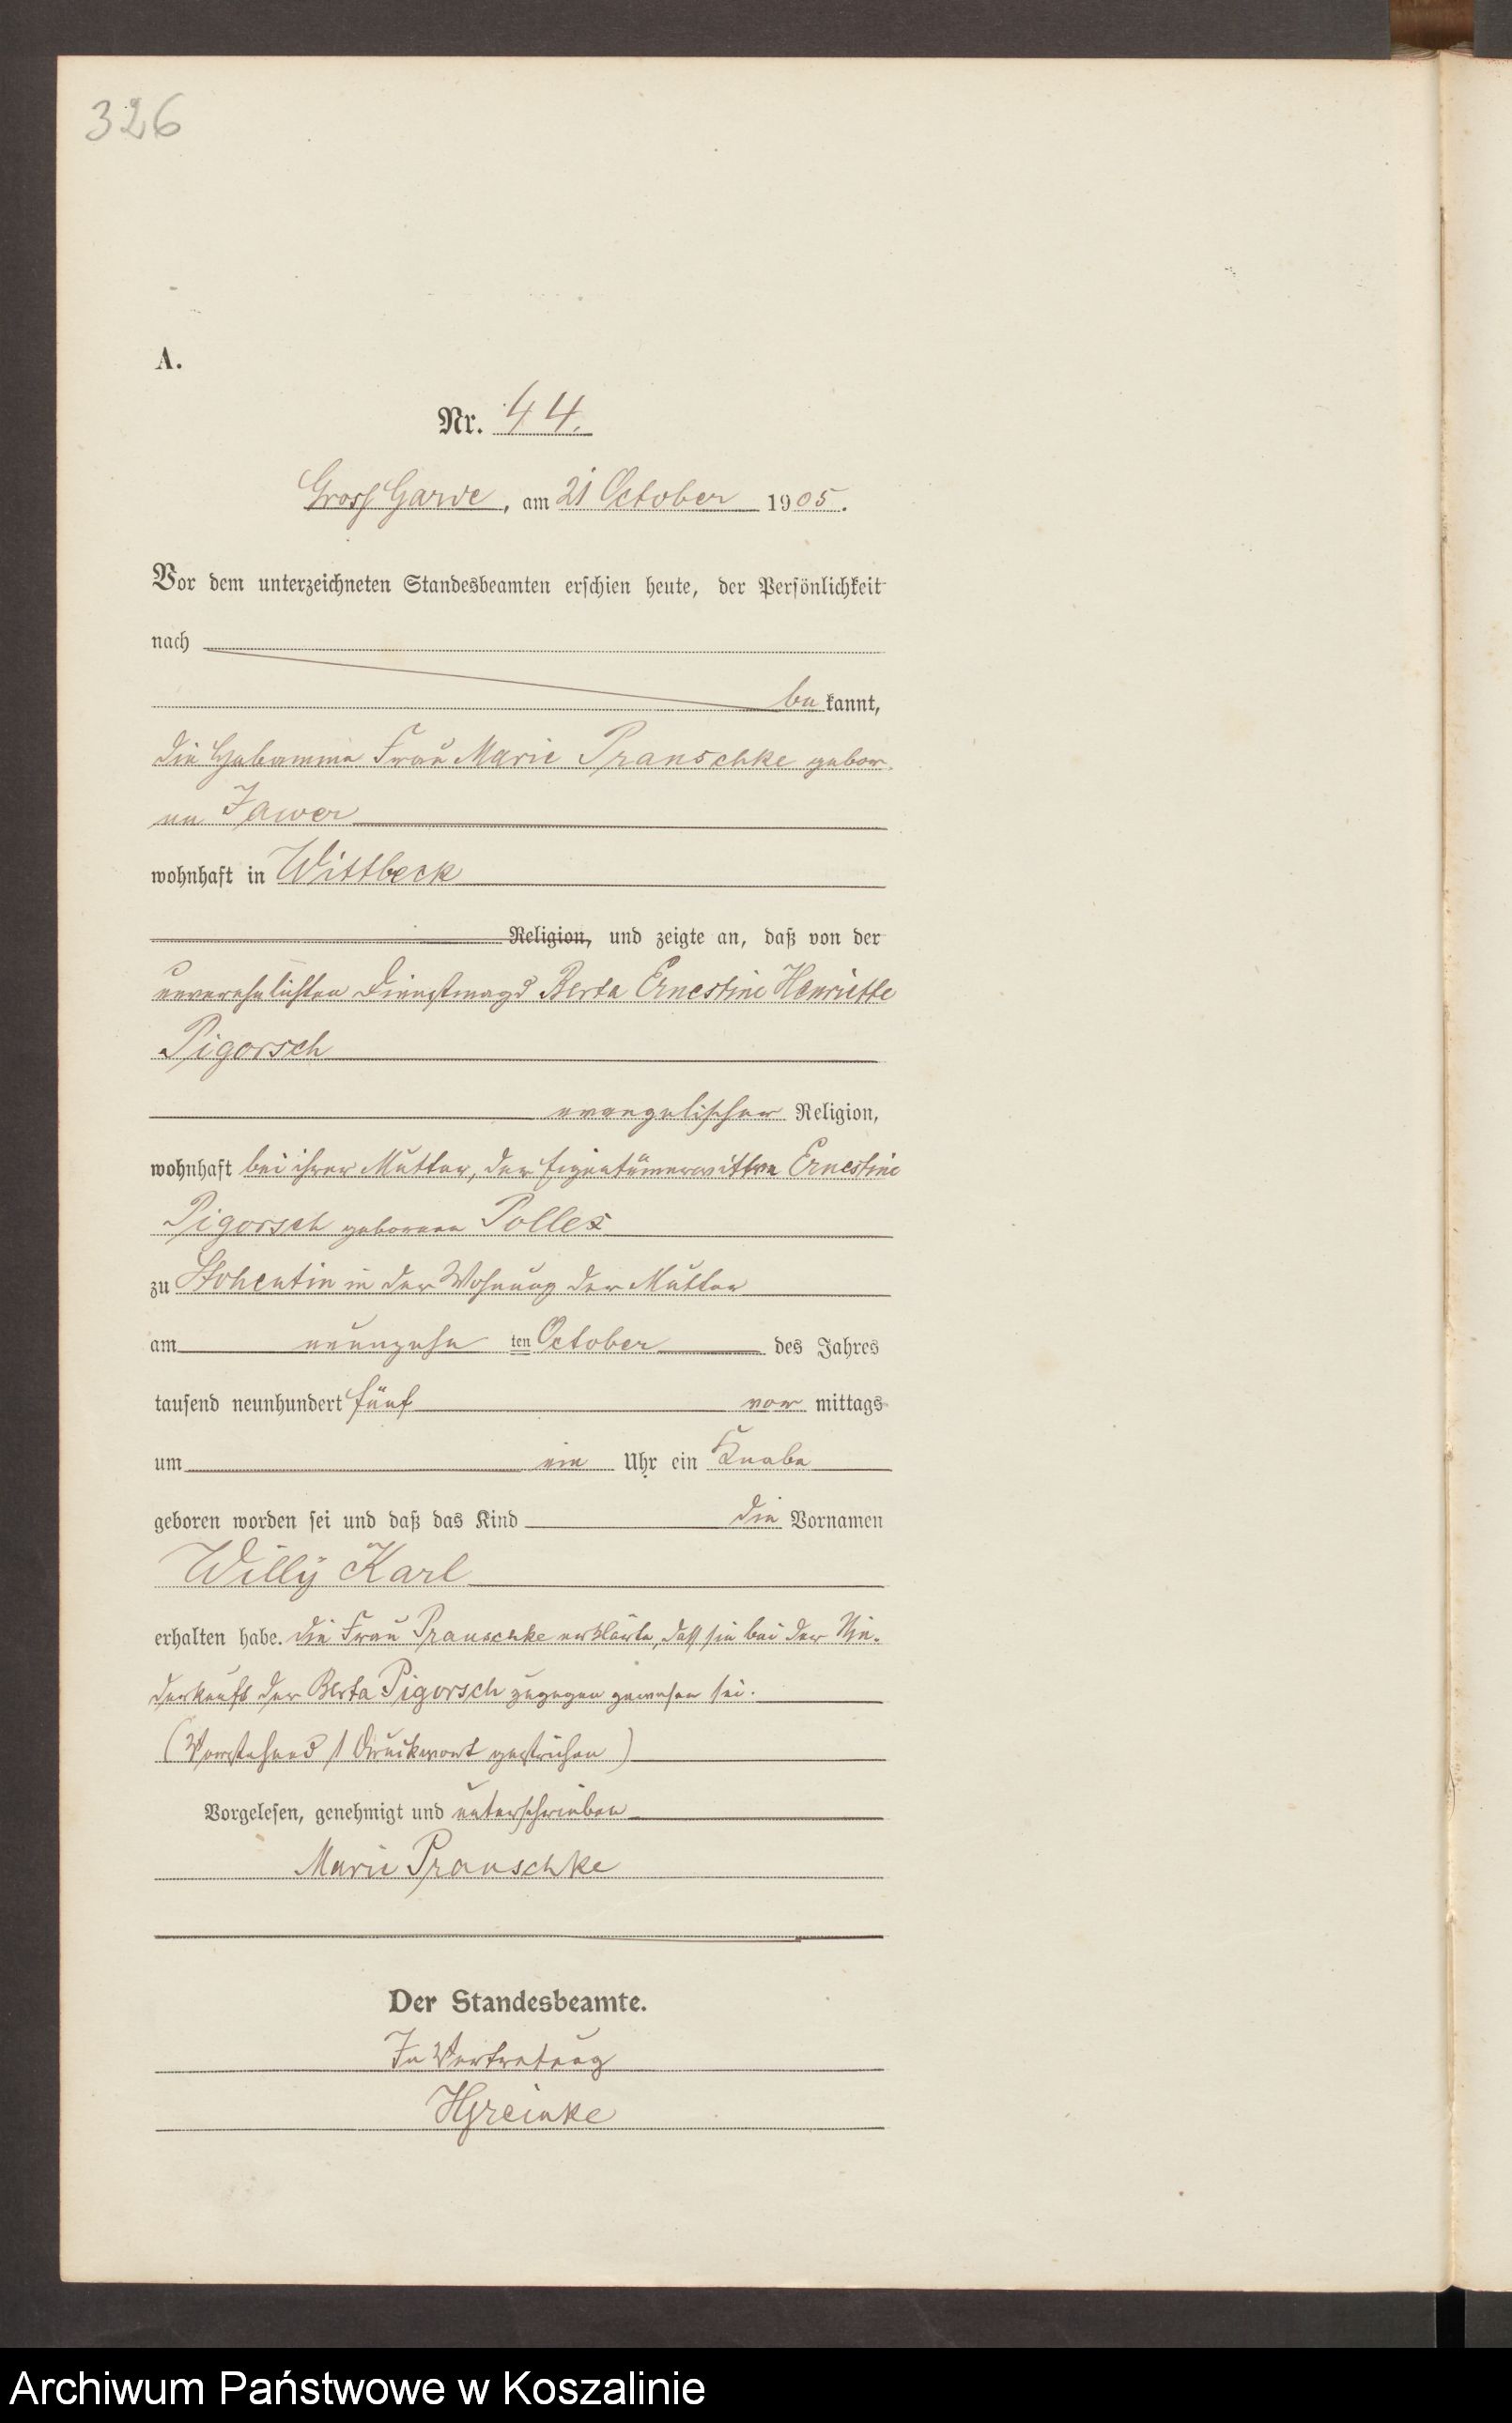 326
A.
Nr. 44.
Gross Garde, am 21 October 1905.
Vor dem unterzeichneten Standesbeamten erschien heute, der Persönlichkeit
nach
be kannt,
die Hebamme Frau Marie Pranschke gebor-
ne Jawer
wohnhaft in Wittbeck
Religion, und zeigte an, daß von der
unverehelichten Dienstmagd Berta Ernestine Henriette
Pigorsch
evangelischer Religion,
wohnhaft bei ihrer Mutter, der Eigentümerwittwe Ernestine
Pigorsch geborene Polles
zu Stohentin in der Wohnung der Mutter
am neunzehn ten October des Jahres
tausend neunhundert fünf vor mittags
um ein Uhr ein Knabe
geboren worden sei und daß das Kind die Vornamen
Willy Karl
erhalten habe. Die Frau Pranschke erklärte, daß sie bei der Nie-
derkunft der Berta Pigorsch zugegen gewesen sei.
(Vorstehend 1 Druckwort gestrichen)
Vorgelesen, genehmigt und unterschrieben
Marie Pranschke
Der Standesbeamte.
In Vertretung
Archiwum Państwowe w Koszalinie